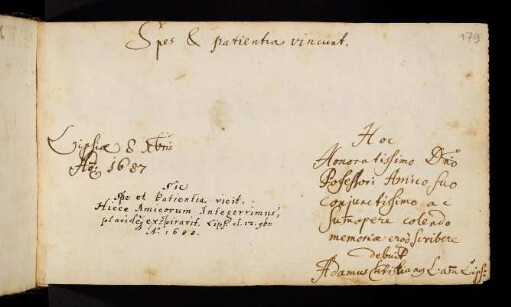 Spes & patientia vincunt.
179
Lipsiæ 8 Xbris
Aō. 1687
Sic
Spe et Patientia vicit,
Hicce Amicorum Integerrimus,
placideq; exspiravit. Lips. d. 12. 9br.
A. 1688.
Hoc
Honoratissimo Dno
Possessori Amico suo
conjunctissimo ac
summopere colendo
memoriæ ergò scribere
debuit
Adamus Christianus Lips.